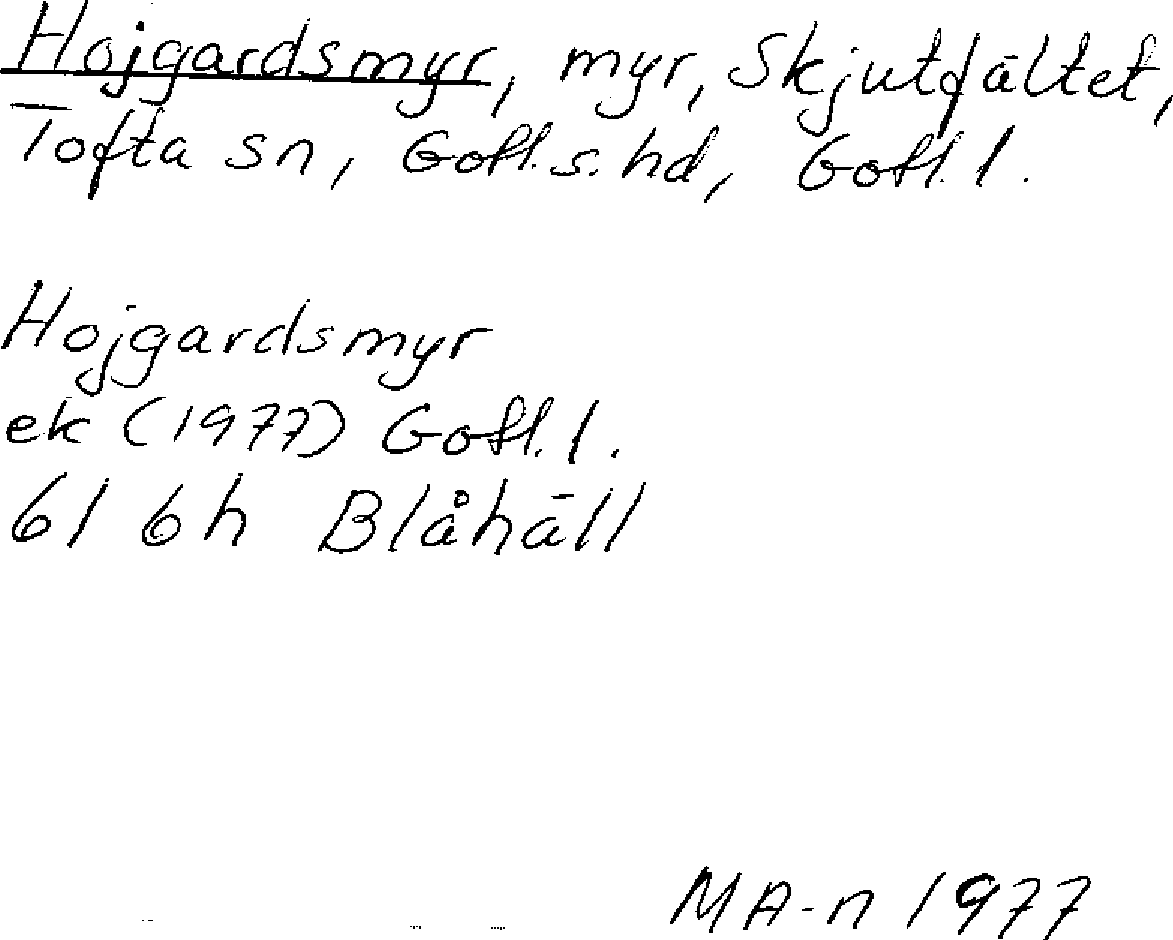 Hojgardsmyr, myr, Skjutfältet,
Tofta sn, Gotl. s. hd, Gotl. l.
Hojgardsmyr
ek (1977) Gotl. l.
6I 6h Blåhäll
MA-n 1977